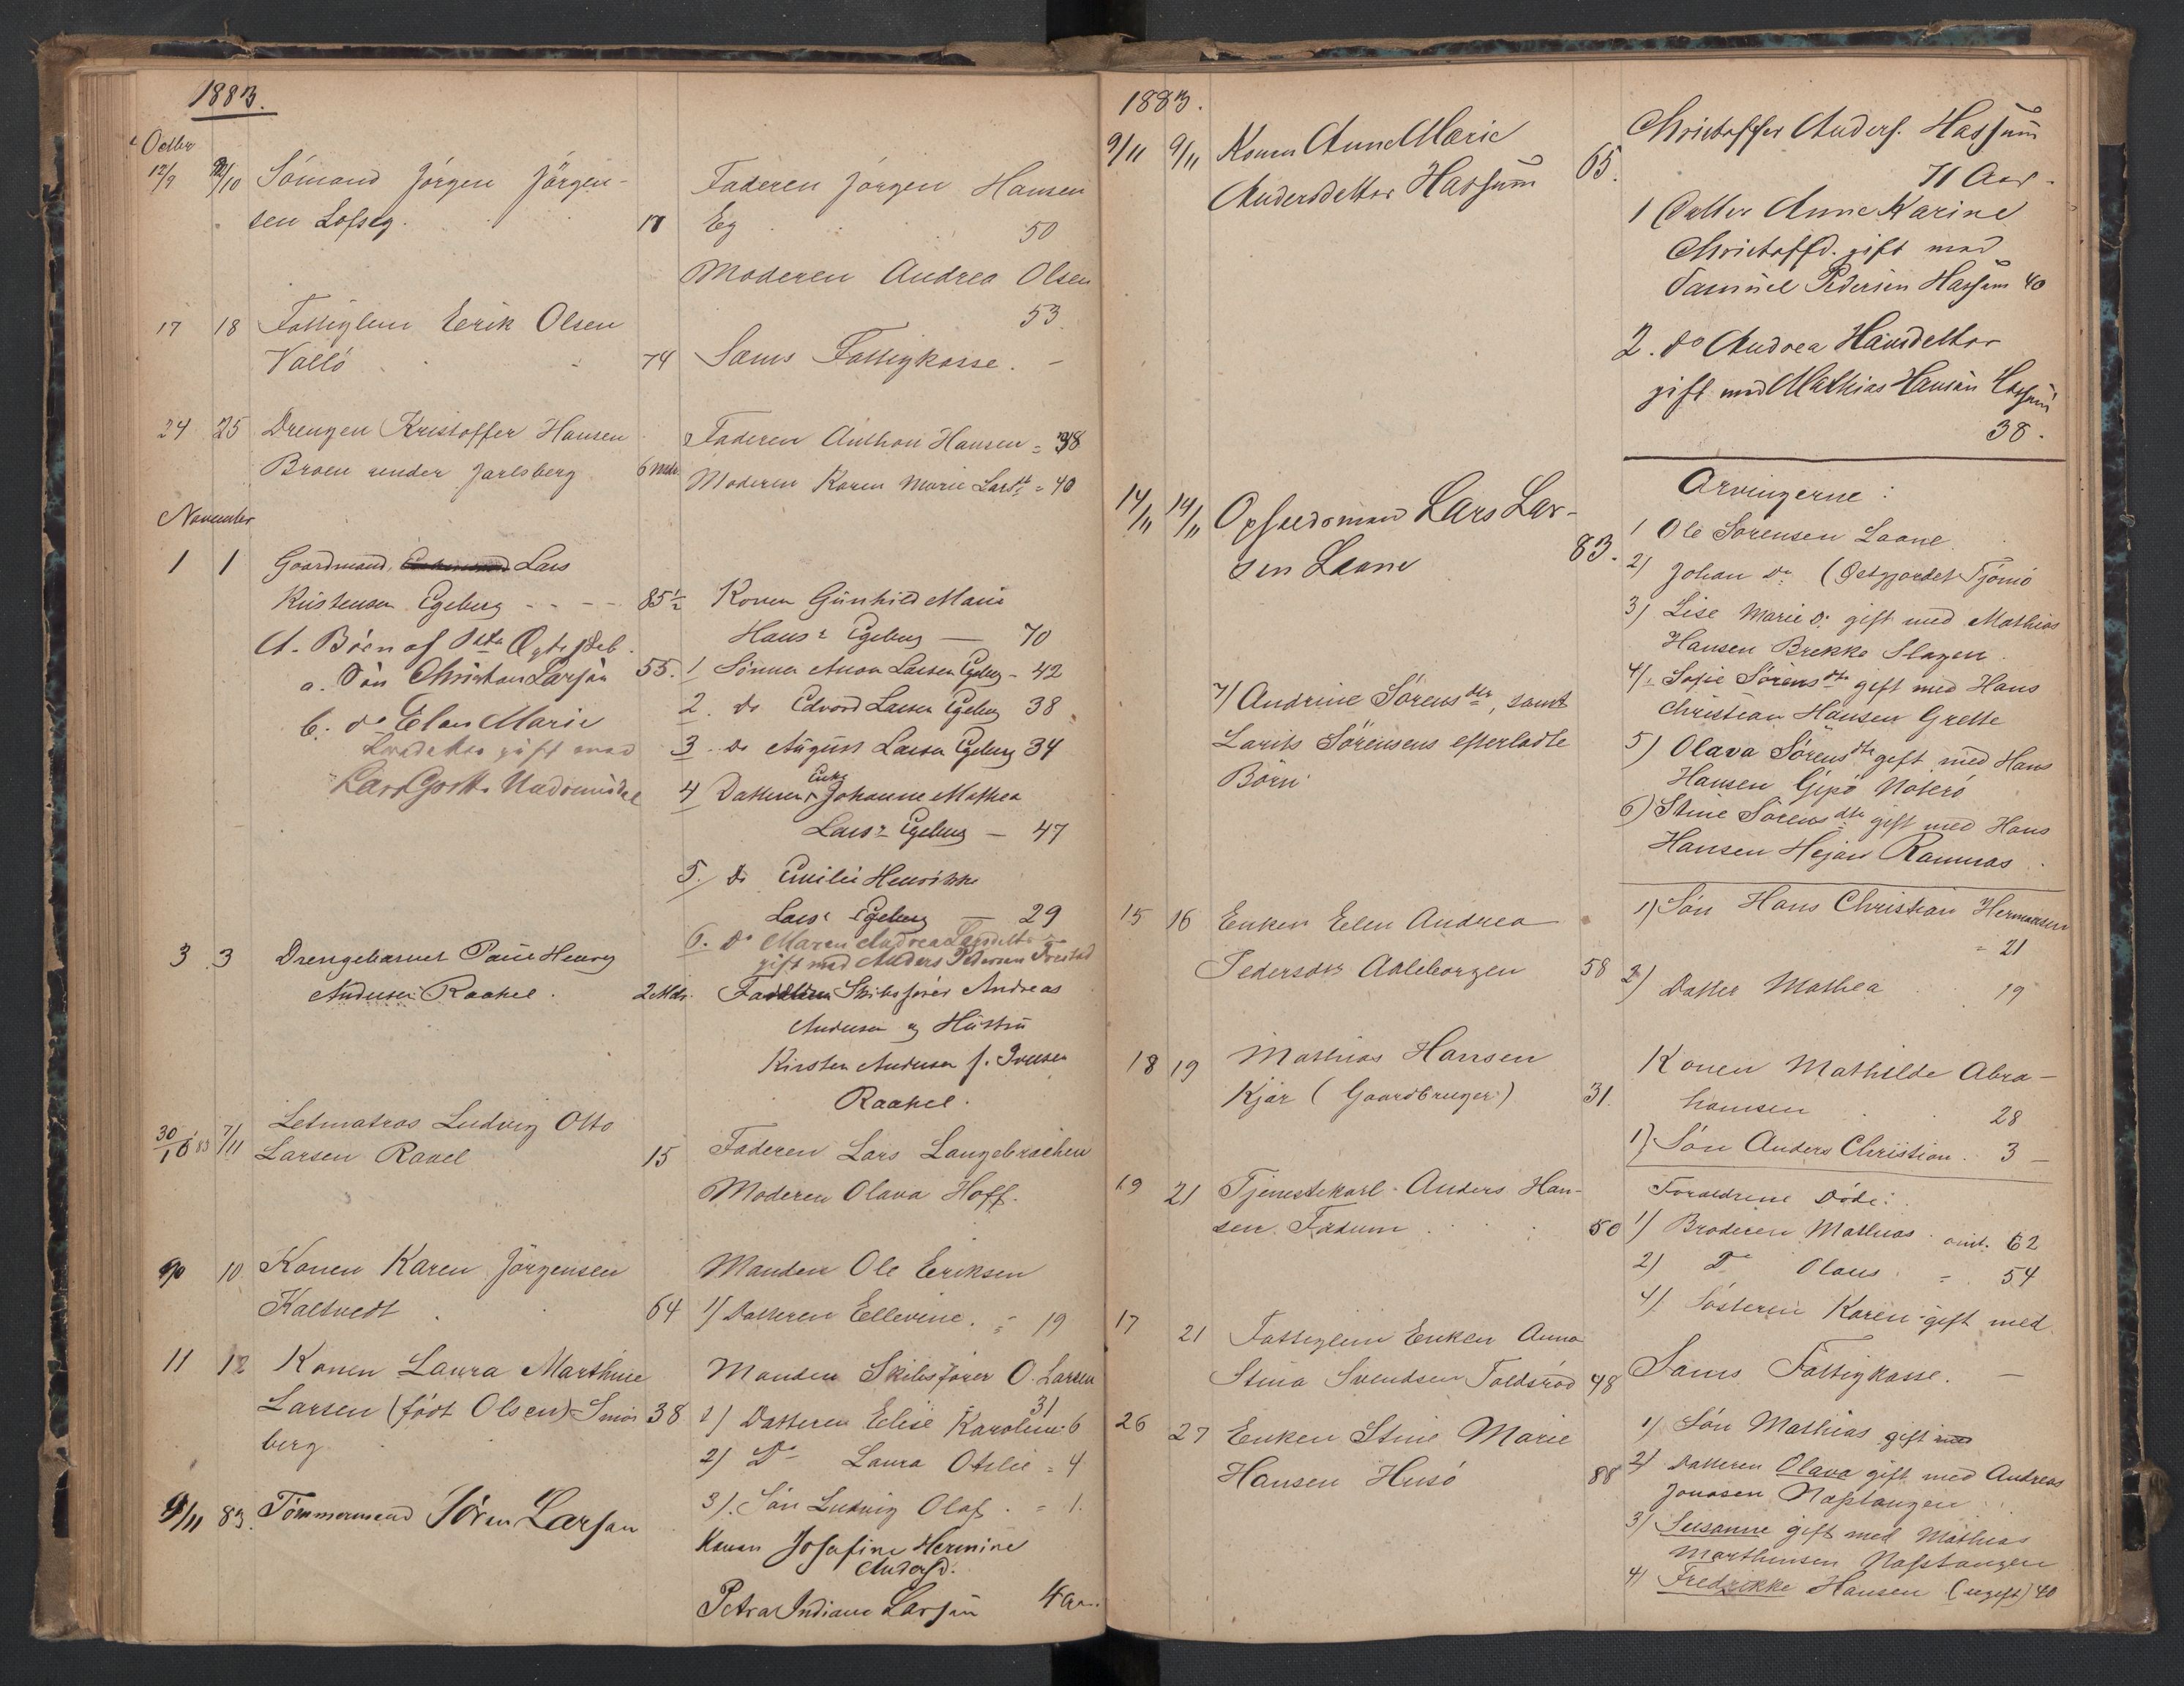 1883.
Octbr
12/9 12/10 Sömand Jörgen Jörgen-
sen Lofseg. 17
Faderen Jörgen Hansen
Eg 50
Moderen Andrea Olsen
53
17 18 Fattiglem Eerik Olsen
Vallö 74 Sæms Fattigkasse. -
24 25 Drengen Kristoffer Hansen
Broen under Jarlsberg 6 Mdr.
Faderen Anthon Hansen = 38
Moderen Karen Marie Larsdt = 40
November
1 1 Gaardmand Lars
Kristensen Egeberg - - - - 85½
A. Börn af 1ste Ægteskab.
a. Sön Christian Larsen 55.
b. do Elen Marie
Larsdatter gift med
Konen Günhild Marie
Hans: Egeberg — 70
1 Sönnen Anon Larsen Egeberg - 42
2. do Edvard Larsen Egeberg 38
3. do August Larsen Egeberg 34
Enke
4 Datteren Johanne Mathea
Lars: Egeberg — 47
5. do Emilie Henrikke
Lars: Egeberg — 29
6. Do Maren Andrea Larsdatter
gift med Anders Pedersen
3 3 Drengebarnet Paul Henry
Andersen Raakel. 2 Mdr.
Skibsförer Andreas
Andersen og Hustru
Kirsten Andersen f. Iversen
Raakel.
30/10 83 7/11 Letmatros Ludvig Otto
Larsen Raael 15
Faderen Lars Langebrækken
Moderen Olava Hoff.
10 Konen Karen Jörgensen
Kaltvedt 64
Manden Ole Eriksen
1) Datteren Ellevine. = 19
11 12 Konen Laura Marthine
Larsen (födt Olsen) Smör 38
berg
Manden Skibsförer O. Larsen
31
1) Datteren Elise Karoline 6
2) Do Laura Otelie = 4
3). Sön Ludvig Olaf. = 1.
9/11 83. Tömmermand Sören Larsen
Konen Josefine Hermine
Andersd.
Petra Indiane Larsen 4 Aar.
1883.
9/11 9/11 Konen Anne Marie
Andersdatter Hassum 65.
Christoffer Anders. Hassum
71 Aar.
1 Datter Anne Karine
Christoffd. gift med
Samuel Pedersen Hassum 40
2. do Andrea Hansdatter
gift med Mathias Hansen Hassum
38.
14/11 14/11 Opsidsmand Lars Lar-
sen Laane 83.
Arvingerne:
1 Ole Sörensen Laane.
2) Johan Do (Østgjordet Tjömö
3) Lise Marie D: gift med Mathias
Hansen Brekke Slagen.
4). Sofie Sörensdtr gift med Hans
Christian Hansen Grette
5) Olava Sörensdtr gift med Hans
Hansen Gipö Nöterö
6) Stine Sörensdtr gift med Hans
Hansen Hejan Ramnæs.
7) Andrine Sörensdtr, samt
Larits Sörensens efterladte
Börn.
15 16 Enken Elen Andrea
Pedersdtr Adleborgen 58
1) Sön Hans Christian Hermansen
= 21
2) Datter Mathea 19
18 19 Mathias Hansen
Kjær (Gaardbruger) 31.
Konen Mathilde Abra-
hamsen 28
1) Sön Anders Christian. 3 —
19 21 Tjenestekarl Anders Han-
sen Fadum 50
Forældrene Döde:
1) Broderen Mathias omt. 62
2) Do Olaus = 54
4) Sösteren Karen gift med
17 21 Fattiglem Enken Anna
Stina Svendsen Toldsröd 48
Sæms Fattigkasse. —
26 27 Enken Stine Marie
Hansen Husö 88
1) Sön Mathias gift
2) Datteren Olava gift med Andreas
Jonasen Næstangen
3) Susanne gift med Mathias
Marthinsen Næstangen
4) Fredrikke Hansen (ugift) 40